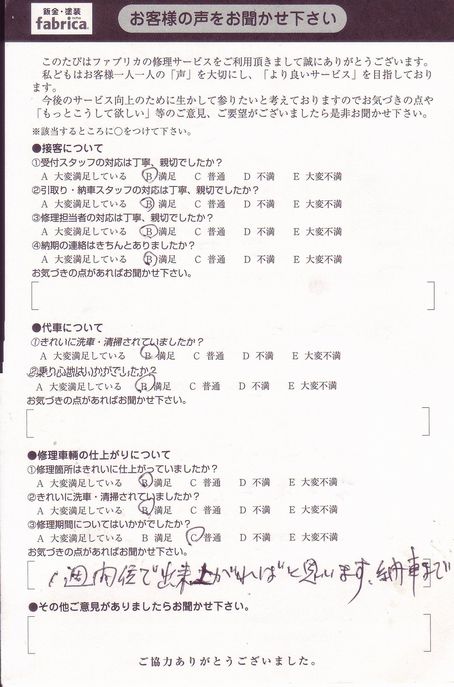 鈑金・塗装
fabrica.
お客様の声をお聞かせ下さい
このたびはファブリカの修理サービスをご利用頂きまして誠にありがとうございます。
私どもはお客様一人一人の「声」を大切にし、「より良いサービス」を目指しており
ます。
今後のサービス向上のために生かして参りたいと考えておりますのでお気づきの点や
「もっとこうして欲しい」等のご意見、ご要望がございましたら是非お聞かせ下さい。
※該当するところに○をつけて下さい。
●接客について
①受付スタッフの対応は丁寧、親切でしたか?
A 大変満足している B 満足 C 普通 D 不満 E 大変不満
②引取り・納車スタッフの対応は丁寧、親切でしたか?
A 大変満足している B 満足 C 普通 D 不満 E 大変不満
③修理担当者の対応は丁寧、親切でしたか?
A 大変満足している B 満足 C 普通 D 不満 E 大変不満
④納期の連絡はきちんとありましたか?
A 大変満足している B 満足 C 普通 D 不満 E 大変不満
お気づきの点があればお聞かせ下さい。
●代車について
①きれいに洗車・清掃されていましたか?
A 大変満足している B 満足 C 普通 D 不満 E 大変不満
②乗り心地はいかがでしたか?
A 大変満足している B 満足 C 普通 D 不満 E 大変不満
お気づきの点があればお聞かせ下さい。
●修理車輌の仕上がりについて
①修理箇所はきれいに仕上がっていましたか?
A 大変満足している B 満足 C 普通 D 不満 E 大変不満
②きれいに洗車・清掃されていましたか?
A 大変満足している B 満足 C 普通 D 不満 E 大変不満
③修理期間についてはいかがでしたか?
A 大変満足している B 満足 C 普通 D 不満 E 大変不満
お気づきの点があればお聞かせ下さい。
1週間位で出来上がればと思います、納車まで
●その他ご意見がありましたらお聞かせ下さい。
ご協力ありがとうございました。